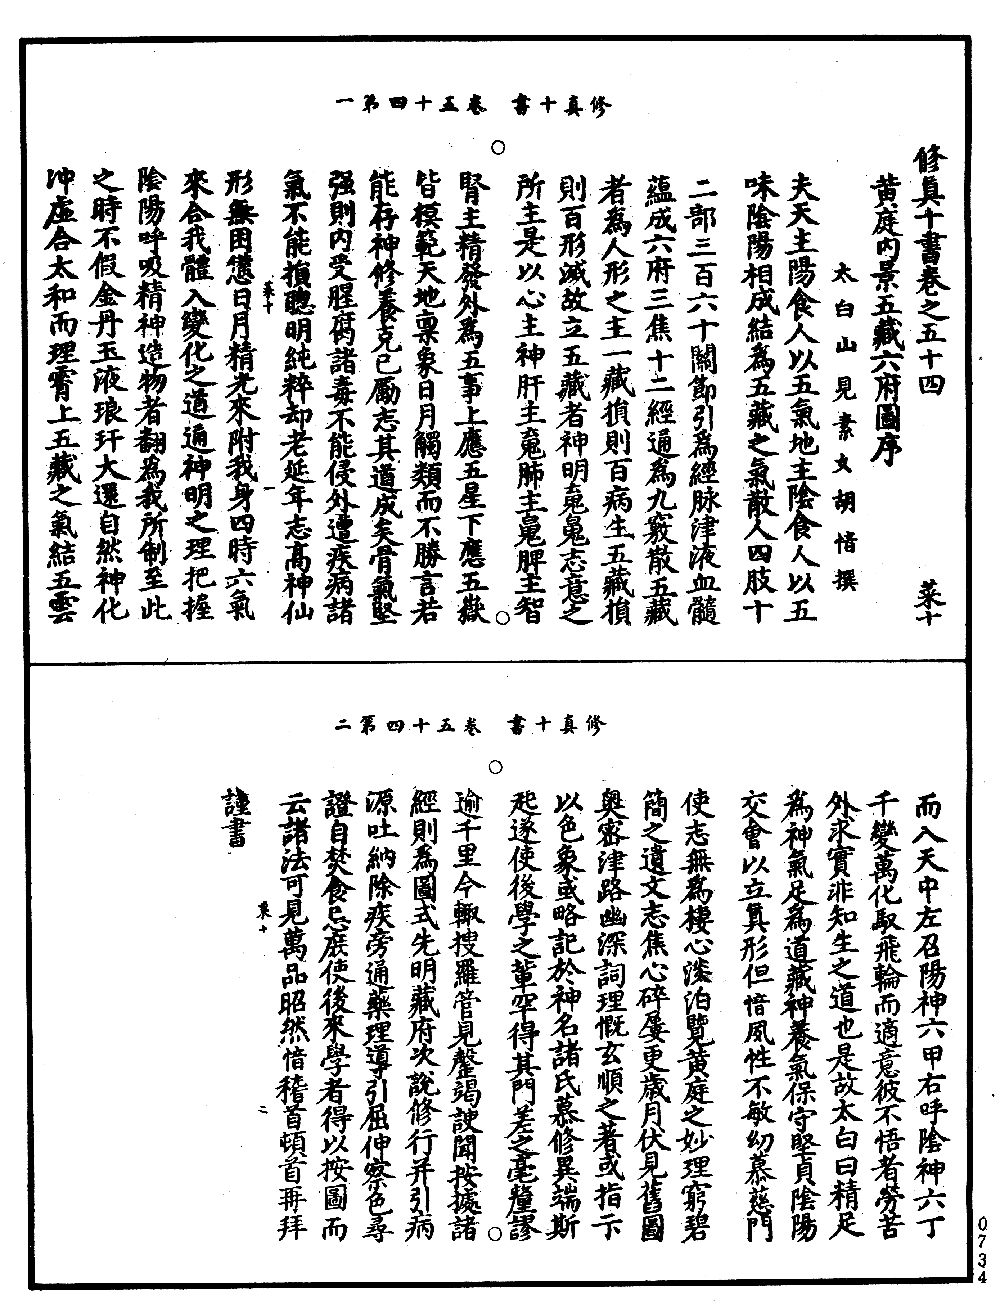 修真十書　卷五十四第一
修真十書卷之五十四　菜十
黃庭內景五藏六府圖序
太白山見素女胡愔撰
夫天主陽食人以五氣地主陰食人以五
味陰陽相成結為五藏之氣散人四肢十
二部三百六十關節引為經脉津液血髓
蘊成六府三焦十二經通為九竅散五藏
者為人形之主一藏損則百病生五藏損
則百形滅故立五藏者神明䰟鬼志意之
所主是以心主神肝主䰟肺主鬼脾主智
腎主精發外為五事上應五星下應五嶽
皆模範天地稟象日月觸類而不勝言若
能存神修養克已勵志其道成矣骨氣堅
强則內受腥腐諸毒不能侵外遭疾病諸
氣不能損聰明純粹却老延年志高神仙
菜十　一
形無困憊日月精光來附我身四時六氣
來合我體入變化之道遍神明之理把握
陰陽呼吸精神造物者翻為我所制至此
之時不假金丹玉液琅玕大還自然神化
冲虛合太和而理霄上五藏之氣結五雲
修真十書　卷五十四第二
而入天中左召陽神六甲右呼陰神六丁
千變萬化馭飛輪而適意彼不悟者勞苦
外求實非知生之道也是故太白曰精足
為神氣足為道藏神養氣保守堅貞陰陽
交會以立真形但愔夙性不敏幼慕慈門
使志無為棲心淡泊覽黃庭之妙理窮碧
簡之遺文志焦心碎屢更歲月伏見舊圖
奧密津路幽深詞理既玄順之著或指示
以色象或略記於神名諸氏慕修異端斯
起遂使後學之輩罕得其門差之毫釐謬
逾千里今輒搜羅管見罄竭謏聞按據諸
經則為圖式先明藏府次說修行并引病
源吐納除疾旁通藥理導引屈伸察色尋
證自焚食忌庶使後來學者得以按圖而
菜十　二
云諸法可見萬品昭然愔稽首頓首再拜
謹書
0734